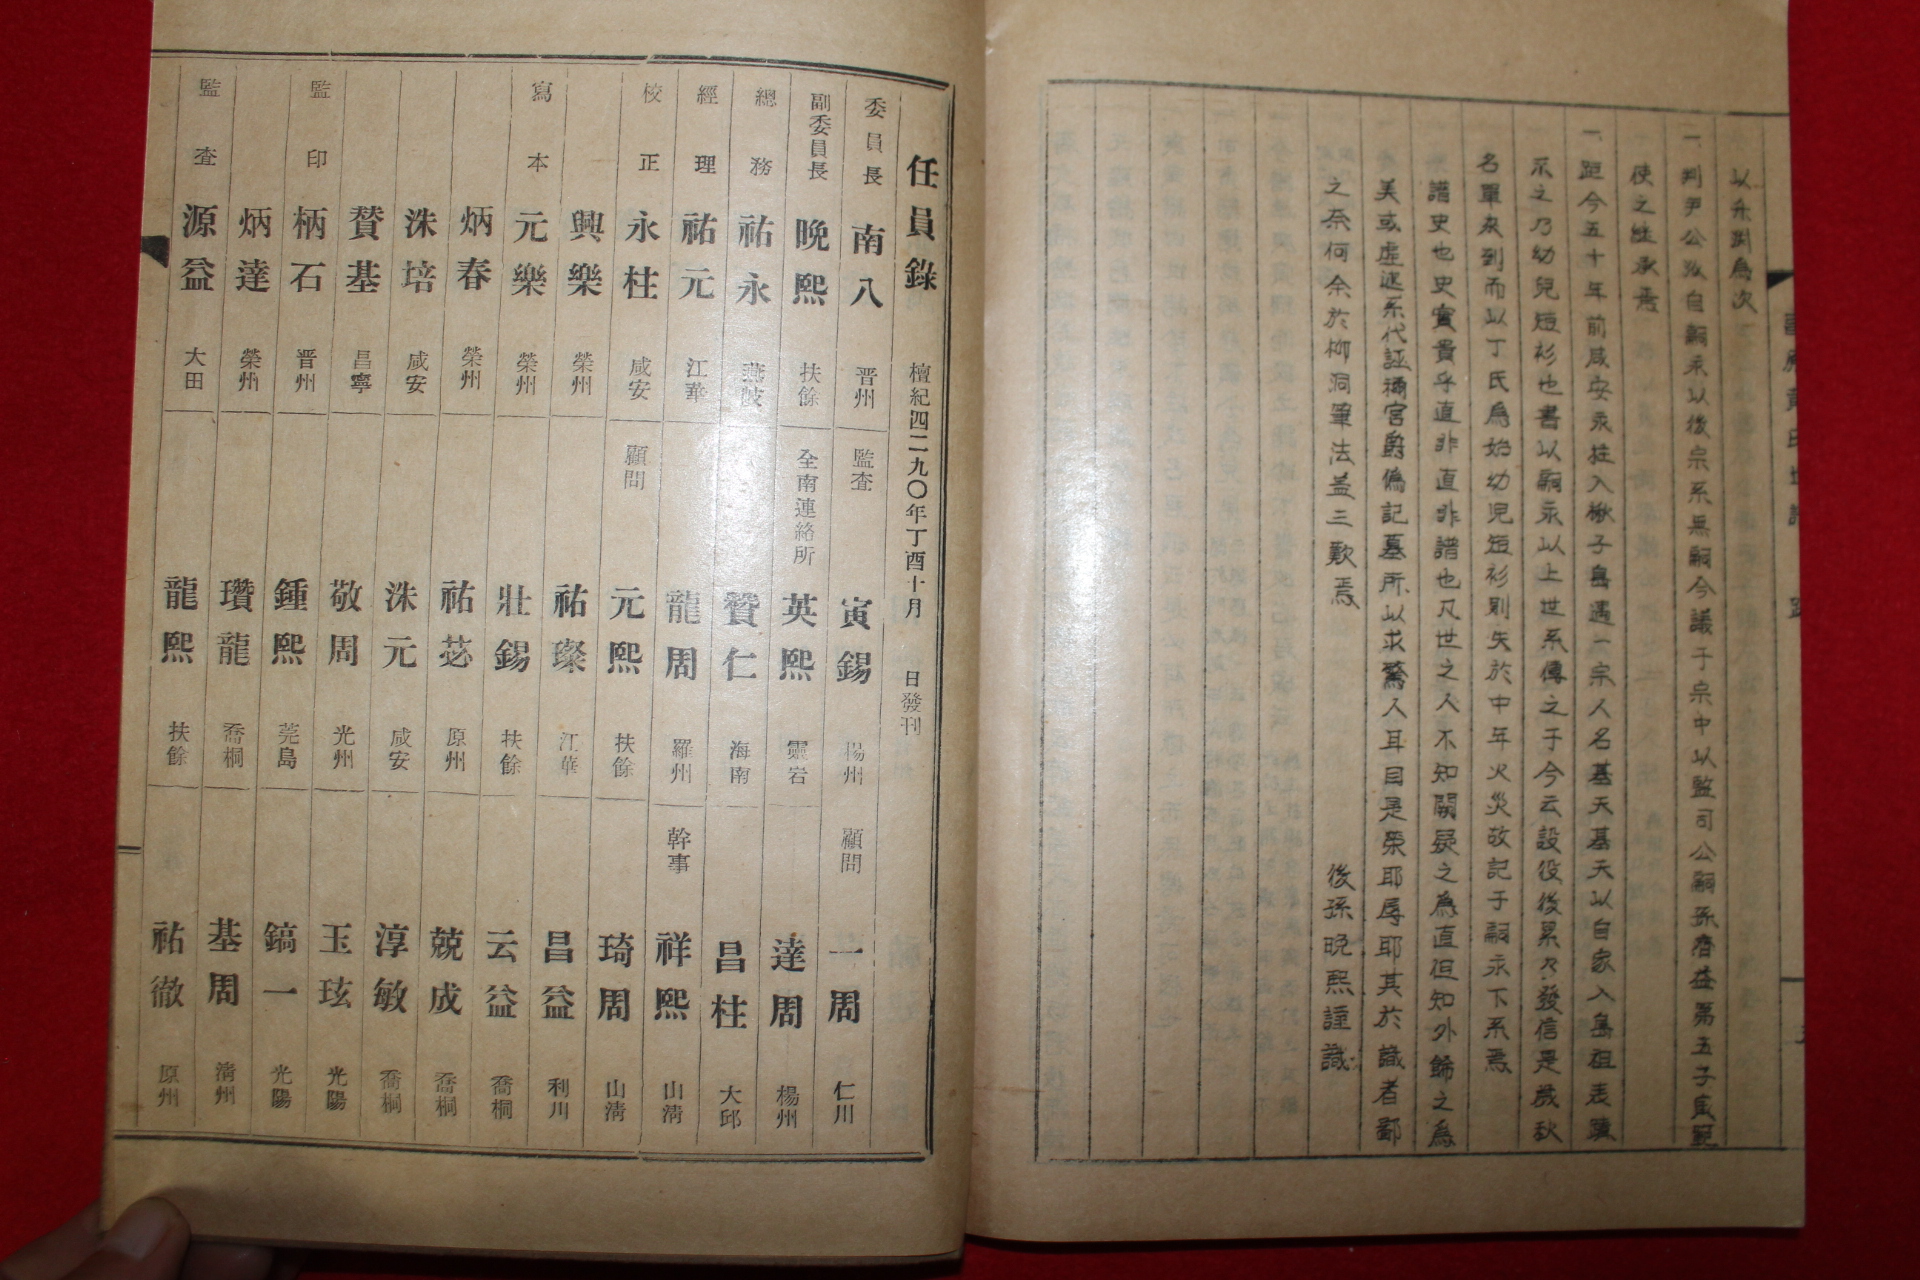 以系列為次
一 判尹公派自嗣永以後宗系無嗣今議于宗中以監司公嗣孫 益第五子寅範
使之繼承焉
一 距今五十年前咸安永柱入楸子島遇一宗人名基天基天以自家入島祖表蹟
示之乃幼兒短衫也書以嗣永以上世系傳之于今云設役後累々發信是歲秋
名單來到而以丁氏為始幼児短衫則失於中年火災故記于嗣永下系焉
譜史也史實貴乎直非直非譜也凡世之人不知闕疑之為直但知外飾之為
美或虛遞系代誣禰宮爵僞記墓所以求驚人耳目是榮耶辱耶其於識者鄙
之奈何余於柳洞筆法益三歎焉
後孫晩熙謹識
任員錄 檀紀四二九〇年丁酉十月 日發刊
委員長 南八 晋州 監査 寅錫 楊州 顧問 一周 仁川
副委員長 晩熙 扶餘 全南連絡所 英熙 靈岩 達周 楊州
總務 祐永 燕岐 贊仁 海南 昌柱 大邱
經理 祐元 江華 龍周 羅州 幹事 祥熙 山淸
校正 永柱 咸安 顧問 元熙 扶餘 琦周 山淸
興樂 榮州 祐璨 江華 昌益 利川
寫本 元樂 榮州 壯錫 扶餘 云益 喬桐
炳春 榮州 祐苾 原州 兢成 喬桐
洙培 咸安 洙元 咸安 淳敏 喬桐
賛基 昌寧 敬周 光州 玉玹 光陽
監印 柄石 晋州 鍾熙 莞島 鎬一 光陽
炳達 榮州 瓚龍 喬桐 基周 淸州
監査 源益 大田 龍熙 扶餘 祐徹 原州